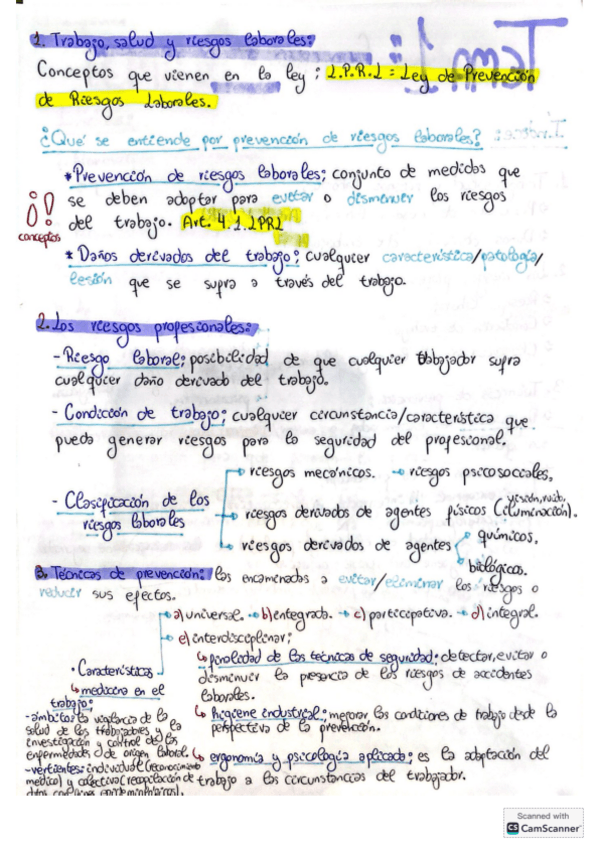 Tema 1:
1. Trabajo, salud y riesgos laborales:
Conceptos que vienen en la ley : L.P.R.L = Ley de Prevención
de Riesgos Laborales.
¿Qué se entiende por prevención de riesgos laborales?
* Prevención de riesgos laborales; conjunto de medidas que
se deben adoptar para evitar o disminuir los riesgos
del trabajo. Art. 4.1. LPRL
¡! conceptos
* Daños derivados del trabajo; cualquier característica/patología/
lesión que se supra a través del trabajo.
2. Los riesgos profesionales:
- Riesgo laboral; posibilidad de que cualquier trabajador supra
cualquier daño derivado del trabajo.
- Condición de trabajo; cualquier circunstancia/característica que
pueda generar riesgos para la seguridad del profesional.
- Clasificación de los
riesgos laborales
→ riesgos mecánicos. → riesgos psicosociales,
→ riesgos derivados de agentes físicos (iluminación).
→ riesgos derivados de agentes
químicos.
biológicos.
3. Técnicas de prevención: las encaminadas a evitar/eliminar los riesgos o
reducir sus efectos.
→ a) universal. → b) integrada. → c) participativa. → d) integral.
→ e) interdisciplinar;
• Características
↳ medicina en el
trabajo;
- ámbitos: la vigilancia de la
salud de los trabajadores y la
investigación y control de las
enfermedades de origen laboral.
- vertientes: individual (reconocimiento
medico) y colectiva (recopilación de
datos con fines epidemiológicos).
↳ finalidad de las técnicas de seguridad; detectar, evitar o
disminuir la presencia de los riesgos de accidentes
laborales.
↳ higiene industrial; mejorar las condiciones de trabajo desde la
perspectiva de la prevención.
↳ ergonomía y psicología aplicada; es la adaptación del
trabajo a las circunstancias del trabajador.
Scanned with
CS CamScanner